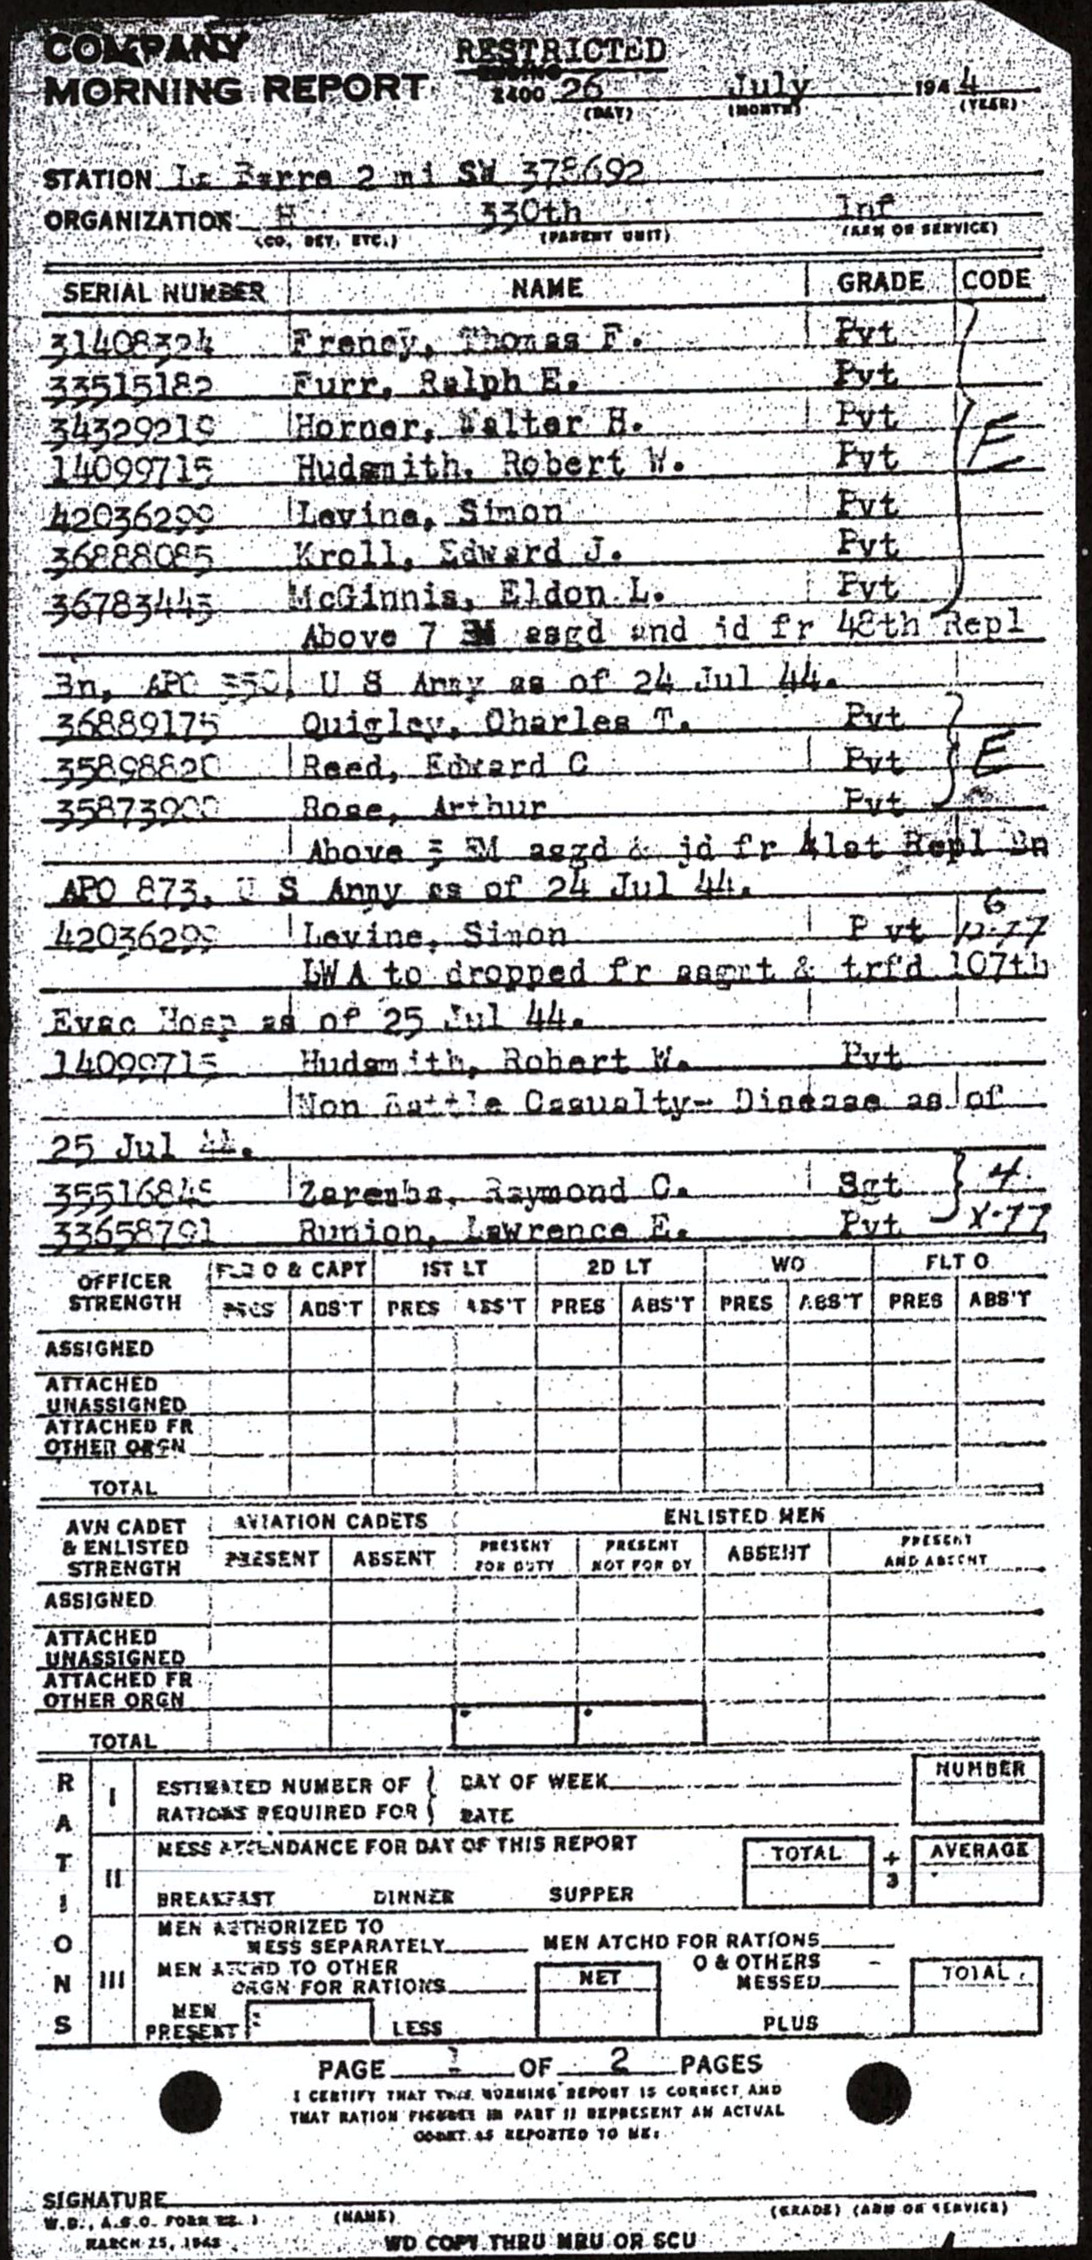 COMPANY RESTRICTED
MORNING REPORT ENDING 2400 26 July 1944
(DAY) (MONTH) (YEAR)
STATION Le Barre 2 mi SW 378692
ORGANIZATION H 330th Inf
(CO. DET, ETC.) (PARENT UNIT) (ARM OR SERVICE)
SERIAL NUMBER NAME GRADE CODE
31408324 Freney, Thomas F. Pvt
33515182 Furr, Ralph E. Pvt
34329219 Horner, Walter H. Pvt
14099715 Hudsmith, Robert W. Pvt E
42036299 Levine, Simon Pvt
36888085 Kroll, Edward J. Pvt
36783443 McGinnis, Eldon L. Pvt
Above 7 EM asgd and jd fr 48th Repl
Bn, APO 350, U S Army as of 24 Jul 44.
36889175 Quigley, Charles T. Pvt
35898820 Reed, Edward C Pvt E
35873900 Rose, Arthur Pvt
Above 3 EM asgd & jd fr 41st Repl Bn
APO 873, U S Army as of 24 Jul 44.
6
42036299 Levine, Simon P vt
LWA to dropped fr asgmt & trf'd 107th
Evac Hosp as of 25 Jul 44.
14099715 Hudsmith, Robert W. Pvt
Non Battle Casualty- Disease as of
25 Jul 44.
35516845 Zaremba, Raymond C. Sgt 4
33658791 Runion, Lawrence E. Pvt X-77
OFFICER STRENGTH FLD O & CAPT 1ST LT 2D LT WO FLT O
PRES ABS'T PRES ABS'T PRES ABS'T PRES ABS'T PRES ABS'T
ASSIGNED
ATTACHED
UNASSIGNED
ATTACHED FR
OTHER ORGN
TOTAL
AVN CADET & ENLISTED STRENGTH AVIATION CADETS ENLISTED MEN
PRESENT ABSENT PRESENT FOR DUTY PRESENT NOT FOR DY ABSENT PRESENT AND ABSENT
ASSIGNED
ATTACHED
UNASSIGNED
ATTACHED FR
OTHER ORGN
TOTAL
RATIONS
I ESTIMATED NUMBER OF RATIONS REQUIRED FOR DAY OF WEEK DATE NUMBER
II MESS ATTENDANCE FOR DAY OF THIS REPORT TOTAL ÷ 3 AVERAGE
BREAKFAST DINNER SUPPER
III MEN AUTHORIZED TO
MESS SEPARATELY MEN ATCHD FOR RATIONS
MEN ATCHD TO OTHER O & OTHERS
ORGN FOR RATIONS NET MESSED TOTAL
MEN
PRESENT LESS PLUS
PAGE 1 OF 2 PAGES
I CERTIFY THAT THIS MORNING REPORT IS CORRECT AND
THAT RATION FIGURES IN PART II REPRESENT AN ACTUAL
COUNT AS REPORTED TO ME:
SIGNATURE
(NAME) (GRADE) (ARM OR SERVICE)
W.D., A.G.O. FORM NO. 1
MARCH 25, 1942 WD COPY THRU MRU OR SCU